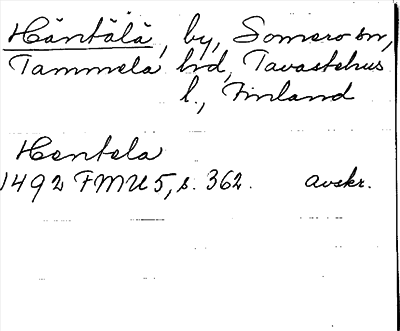 Häntälä, by, Somero sn,
Tammela hrd, Tavastehus
l., Finland
Hentela
1492 FMU 5, s. 362. avskr.